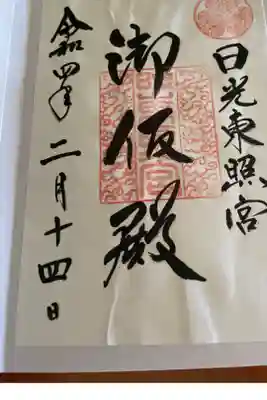 日光東照宮
御仮殿
令和四年二月十四日